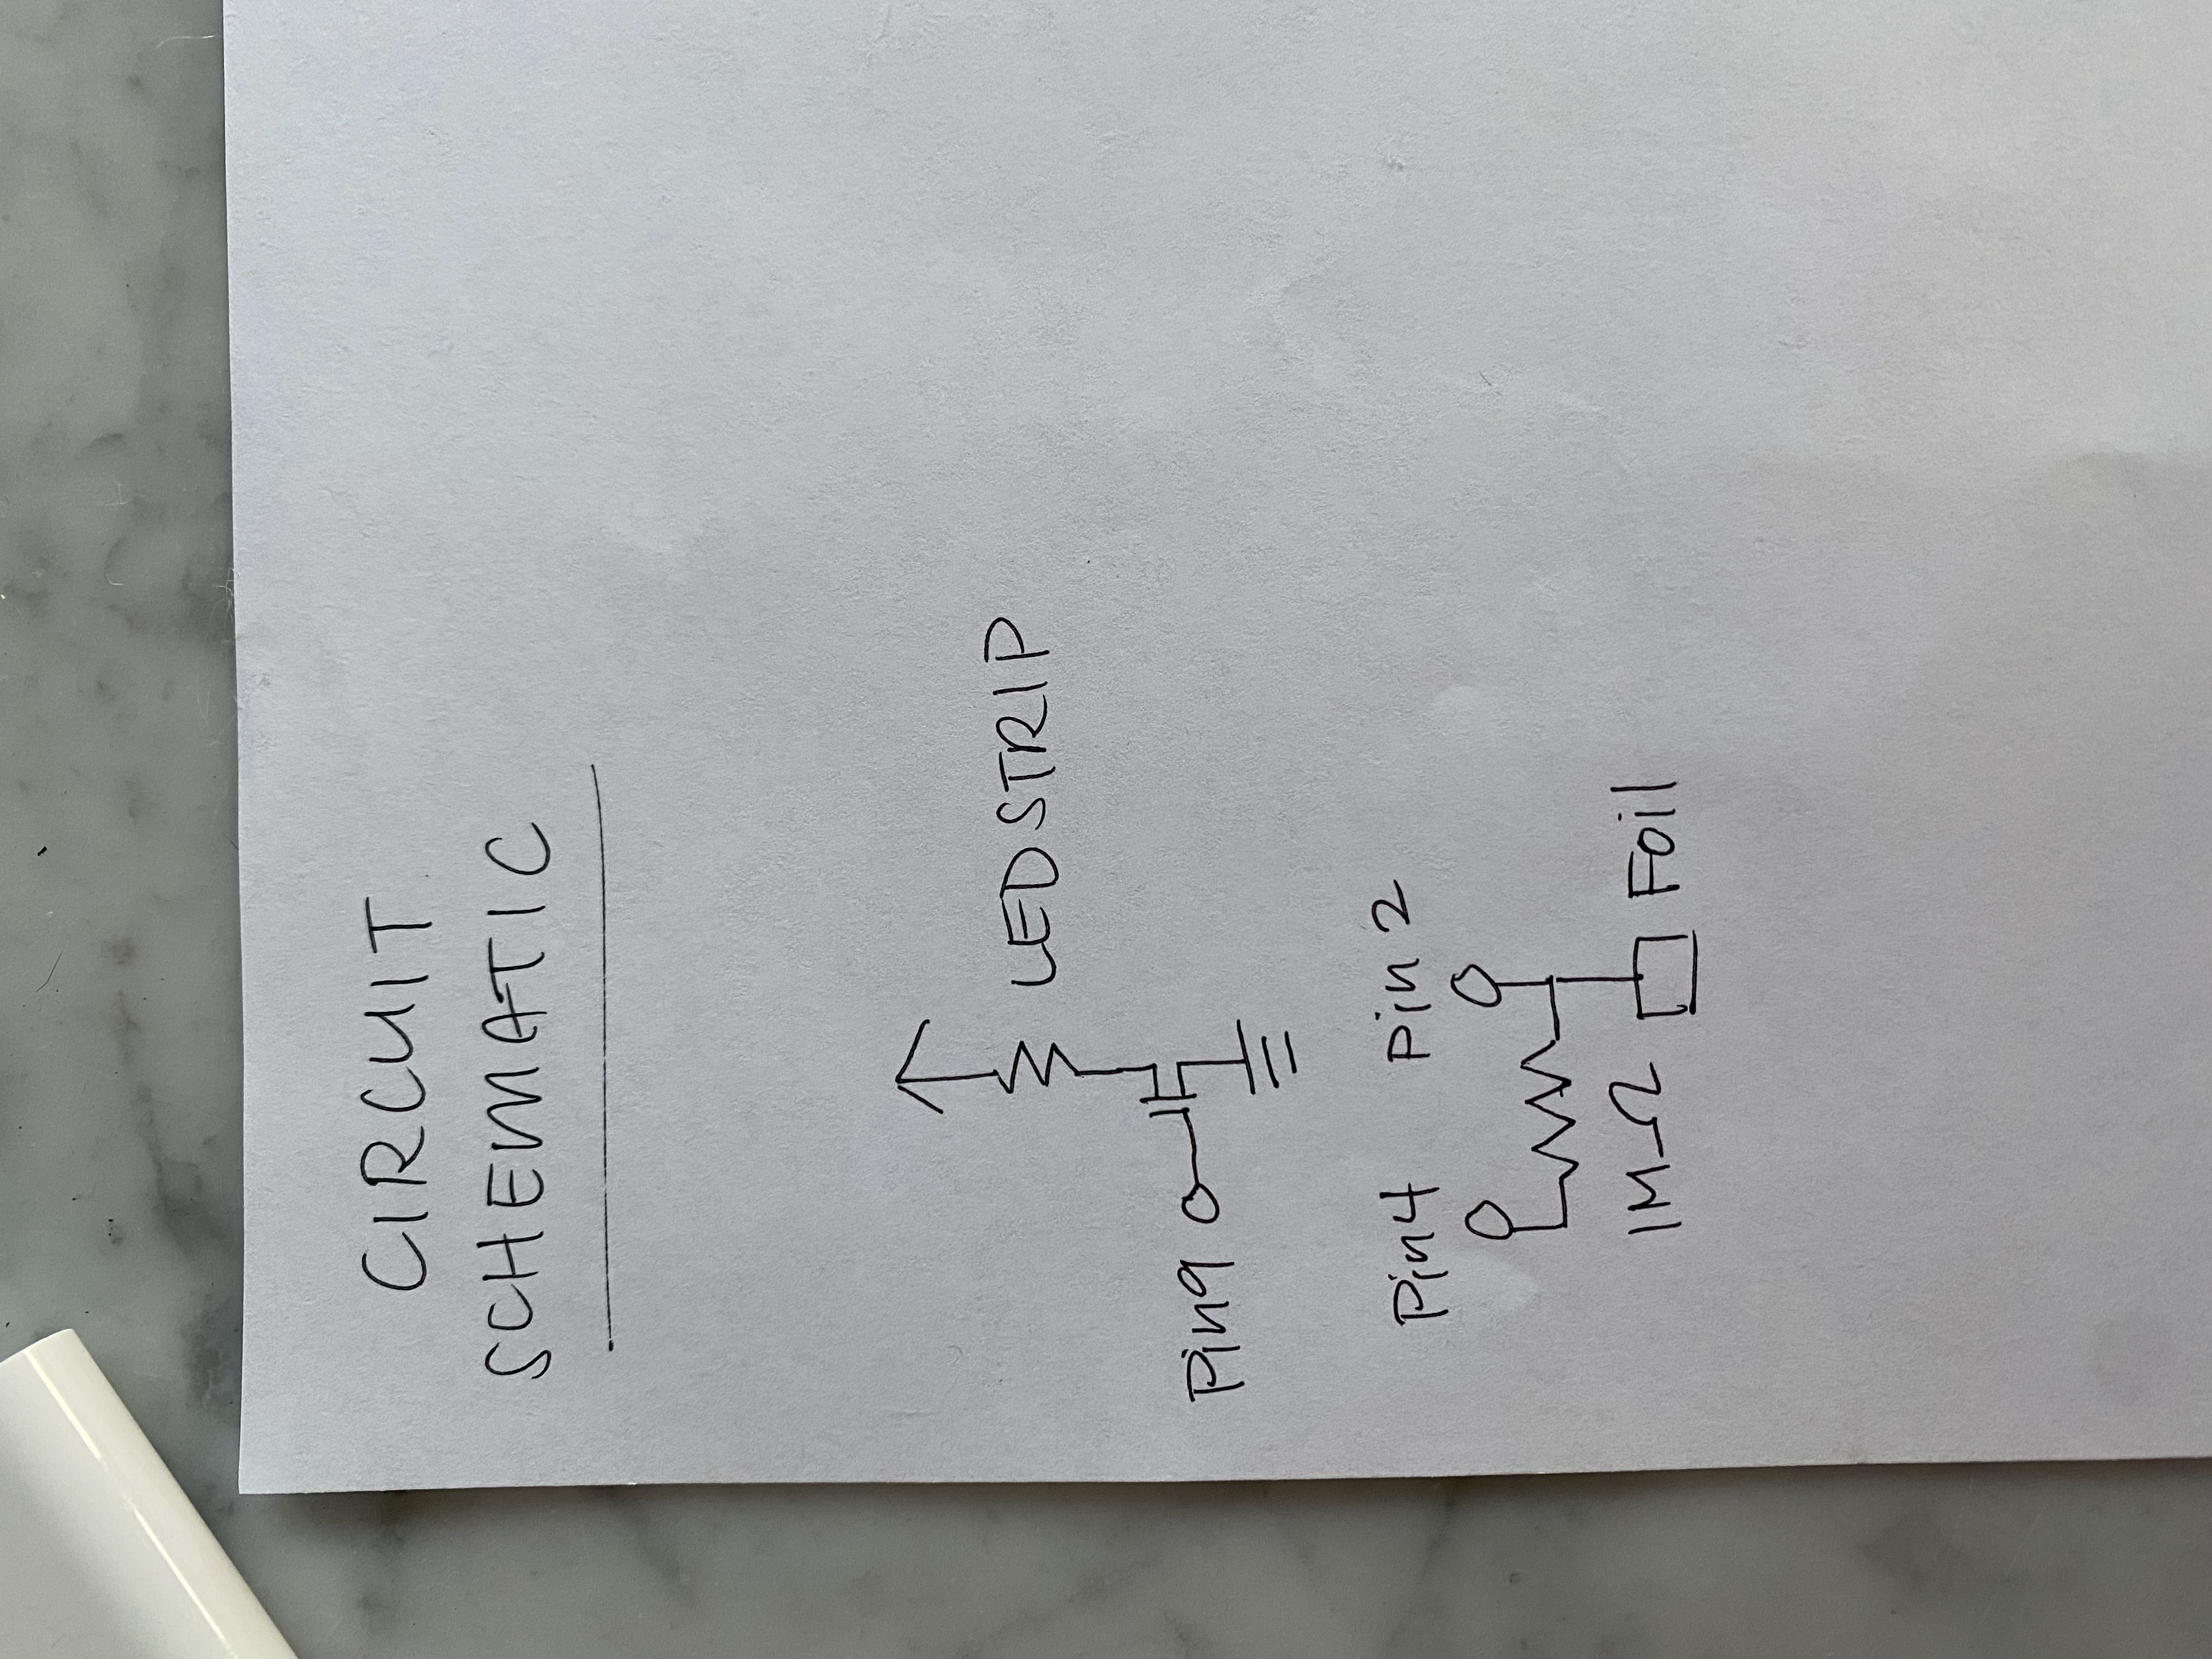 CIRCUIT
SCHEMATIC
LED STRIP
Pin9
Pin4 Pin 2
1MΩ Foil